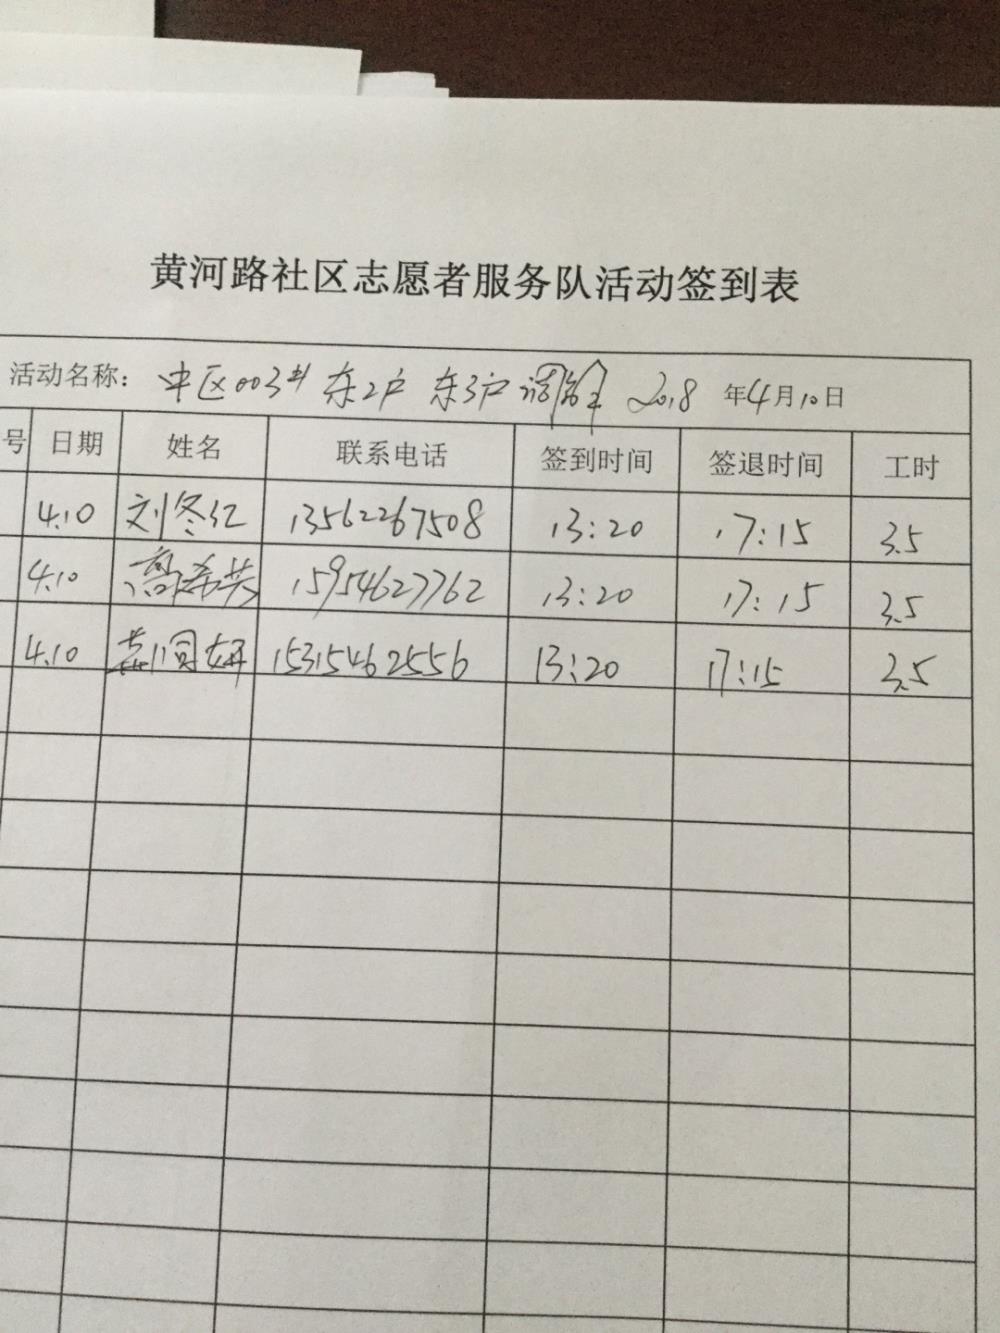 黄河路社区志愿者服务队活动签到表
活动名称: 中区003# 东2户 东3户 调解 2018 年4月10日
号 日期 姓名 联系电话 签到时间 签退时间 工时
4.10 刘冬红 13562267508 13:20 17:15 3.5
4.10 希芸 15954627762 13:20 17:15 3.5
4.10 妍 15315462556 13:20 17:15 3.5